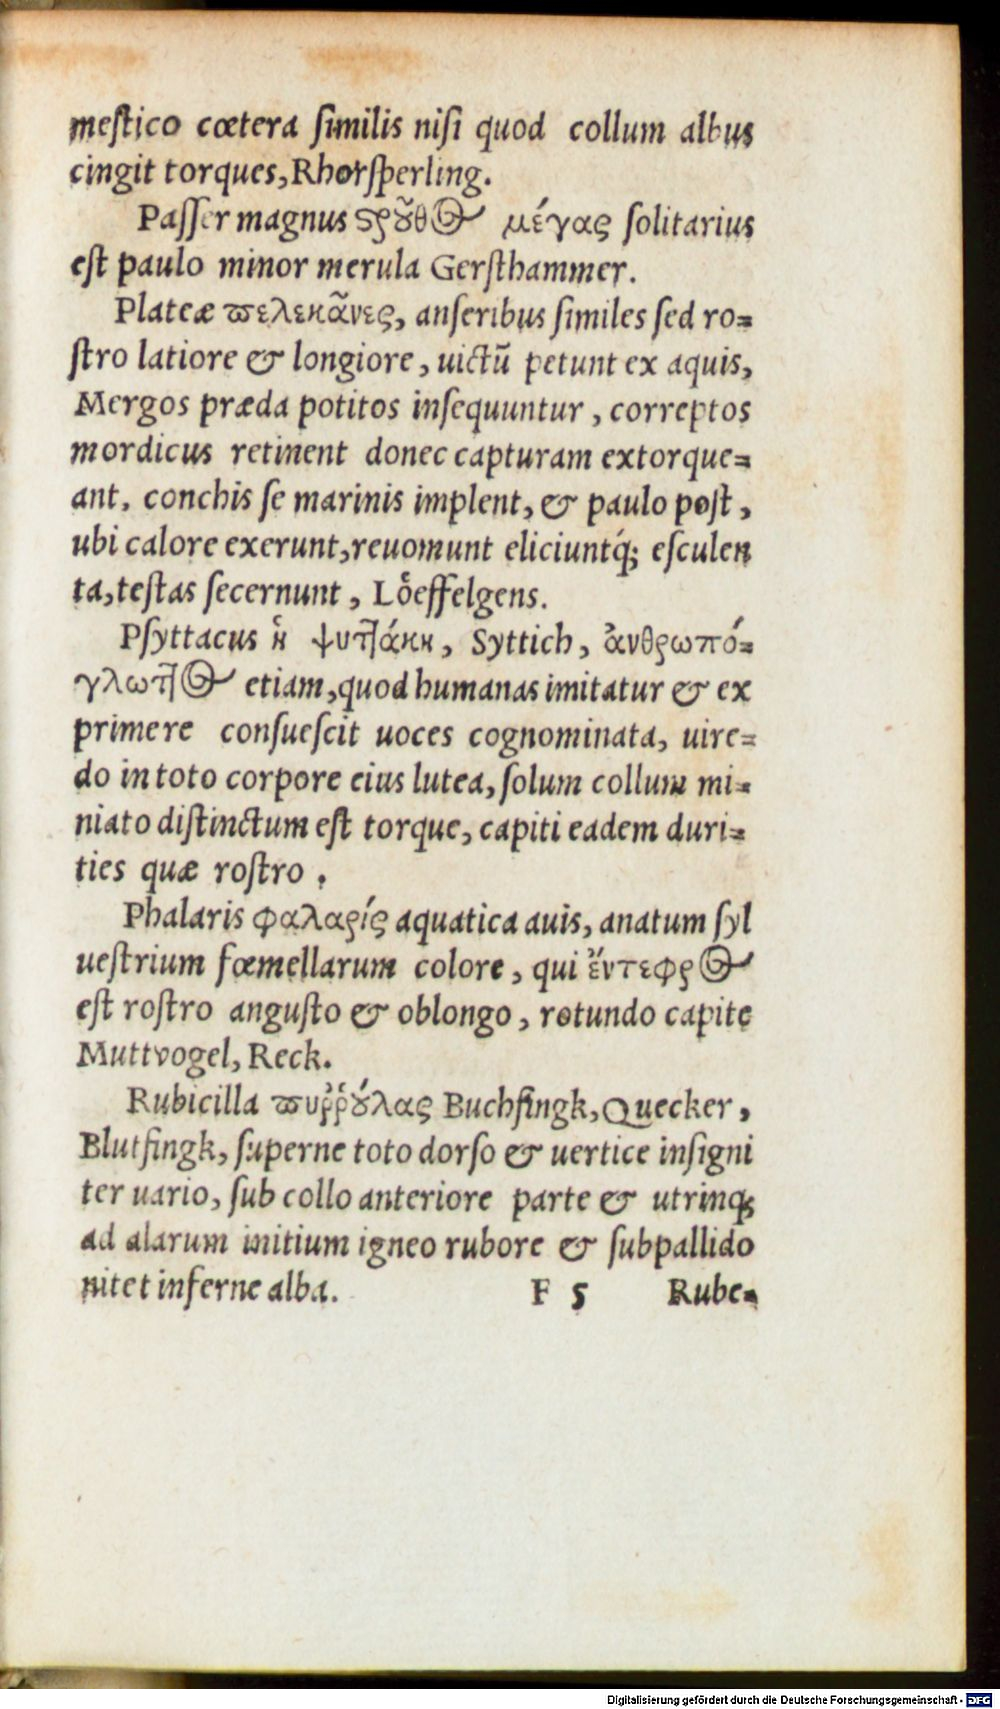 meſtico cœtera ſimilis niſi quod collum albus
cingit torques, Rhorſperling.
Paſſer magnus ϛρȣ͂θος μέγας ſolitarius
eſt paulo minor merula Gerſthammer.
Plateæ ϖελεκᾶνες, anſeribus ſimiles ſed ro=
ſtro latiore & longiore, uictũ petunt ex aquis,
Mergos præda potitos inſequuntur, correptos
mordicus retinent donec capturam extorque=
ant. conchis ſe marinis implent, & paulo poſt,
ubi calore exerunt, reuomunt eliciuntq́; eſculen
ta, teſtas ſecernunt, Lôeffelgens.
Pſyttacus ἢ ψυτ]άκη, Syttich, ἀνθρωπό=
γλωτ]ος etiam, quod humanas imitatur & ex
primere conſueſcit uoces cognominata, uire=
do in toto corpore eius lutea, ſolum collum mi=
niato diſtinctum eſt torque, capiti eadem duri=
ties quæ roſtro.
Phalaris φαλαρίς aquatica auis, anatum ſyl
ueſtrium fœmellarum colore, qui ἔντεφρος
eſt roſtro anguſto & oblongo, rotundo capite
Muttvogel, Reck.
Rubicilla ϖυῤῥȣ́λας Buchfingk, Quecker,
Blutfingk, ſuperne toto dorſo & uertice inſigni
ter uario, ſub collo anteriore parte & utrinq;
ad alarum initium igneo rubore & ſubpallido
nitet inferne alba. F 5 Rube=
Digitalisierung gefördert durch die Deutsche Forschungsgemeinschaft - DFG